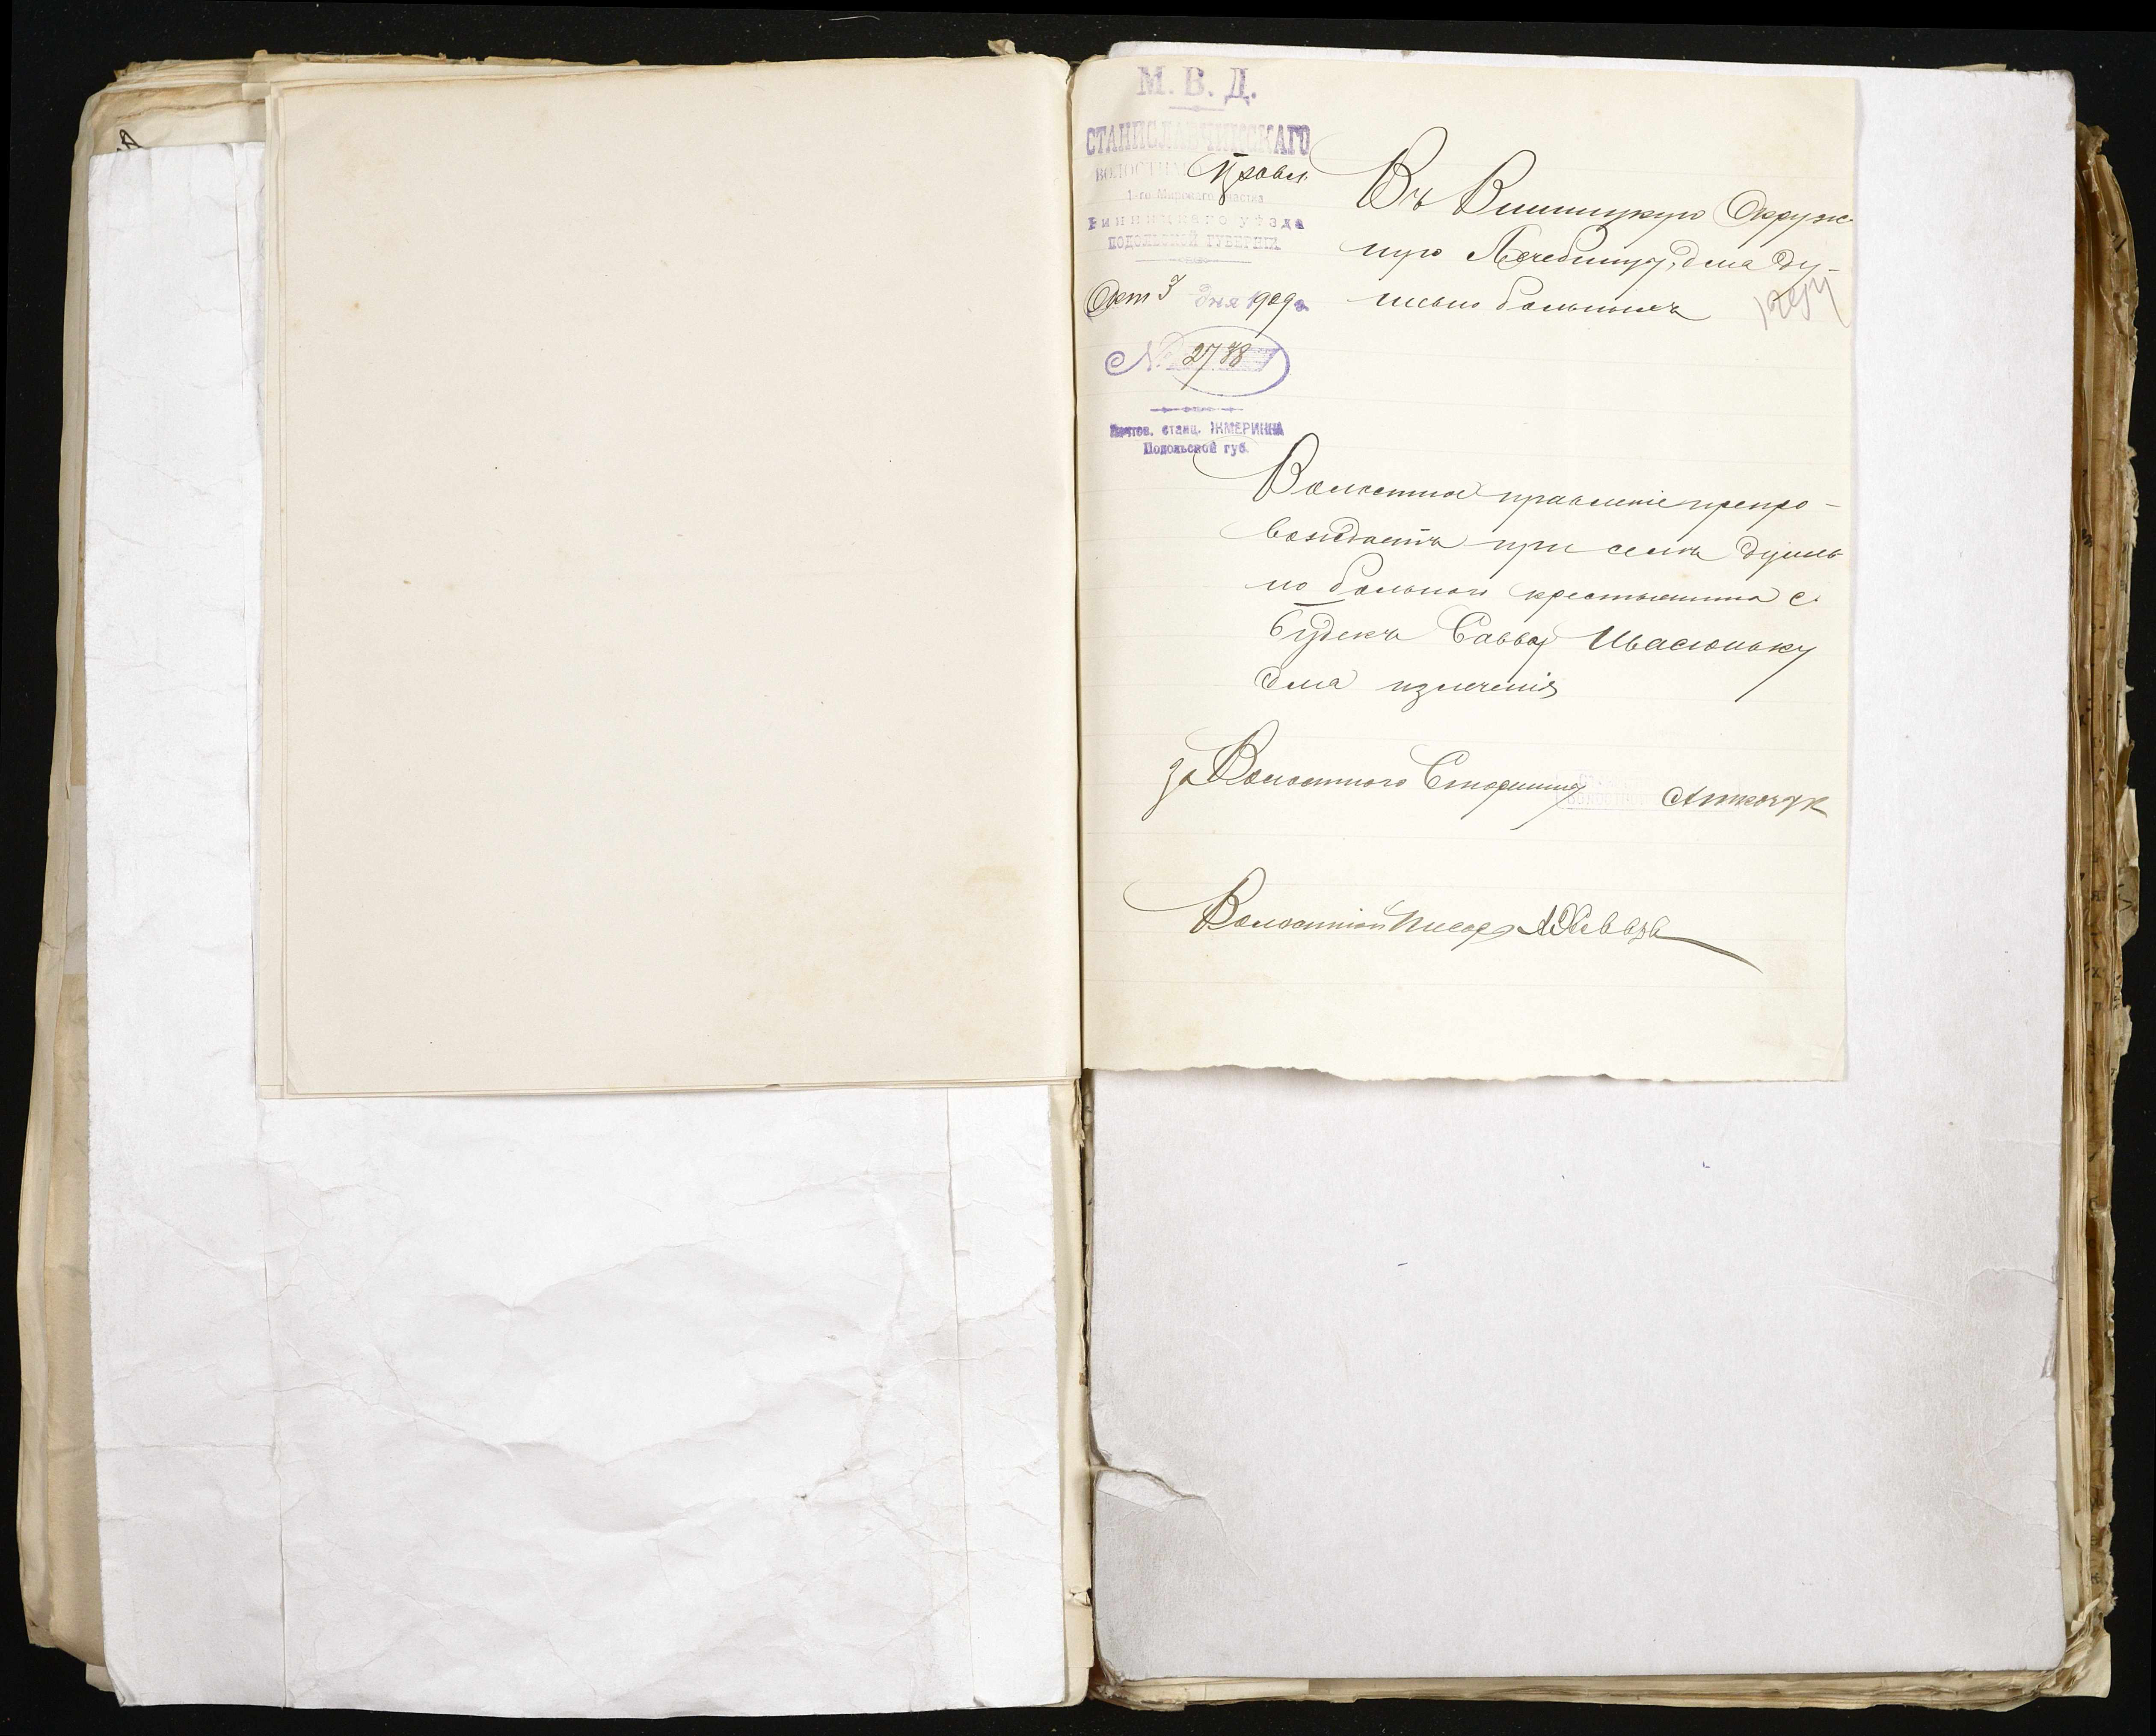 М. В. Д.
СТАНИСЛАВЧИКСКАГО
ВОЛОСТНАГО Правл.
1-го Мироваго участка
Винницкаго уѣзда
ПОДОЛЬСКОЙ ГУБЕРНІИ.
Окт 3 дня 1909 г.
№ 2778
Почтов. станц. ЖМЕРИНКА
Подольской губ.
Въ Винницкую Окруж-
ную Лечебницу, для ду-
шевно больныхъ
Волостное правленіе препро-
вождаетъ при семъ душев-
но больнои крестьянина с.
Будекъ Савву Ивасюньку
для излеченія
за Волостного Старшину
Волостной Писарь